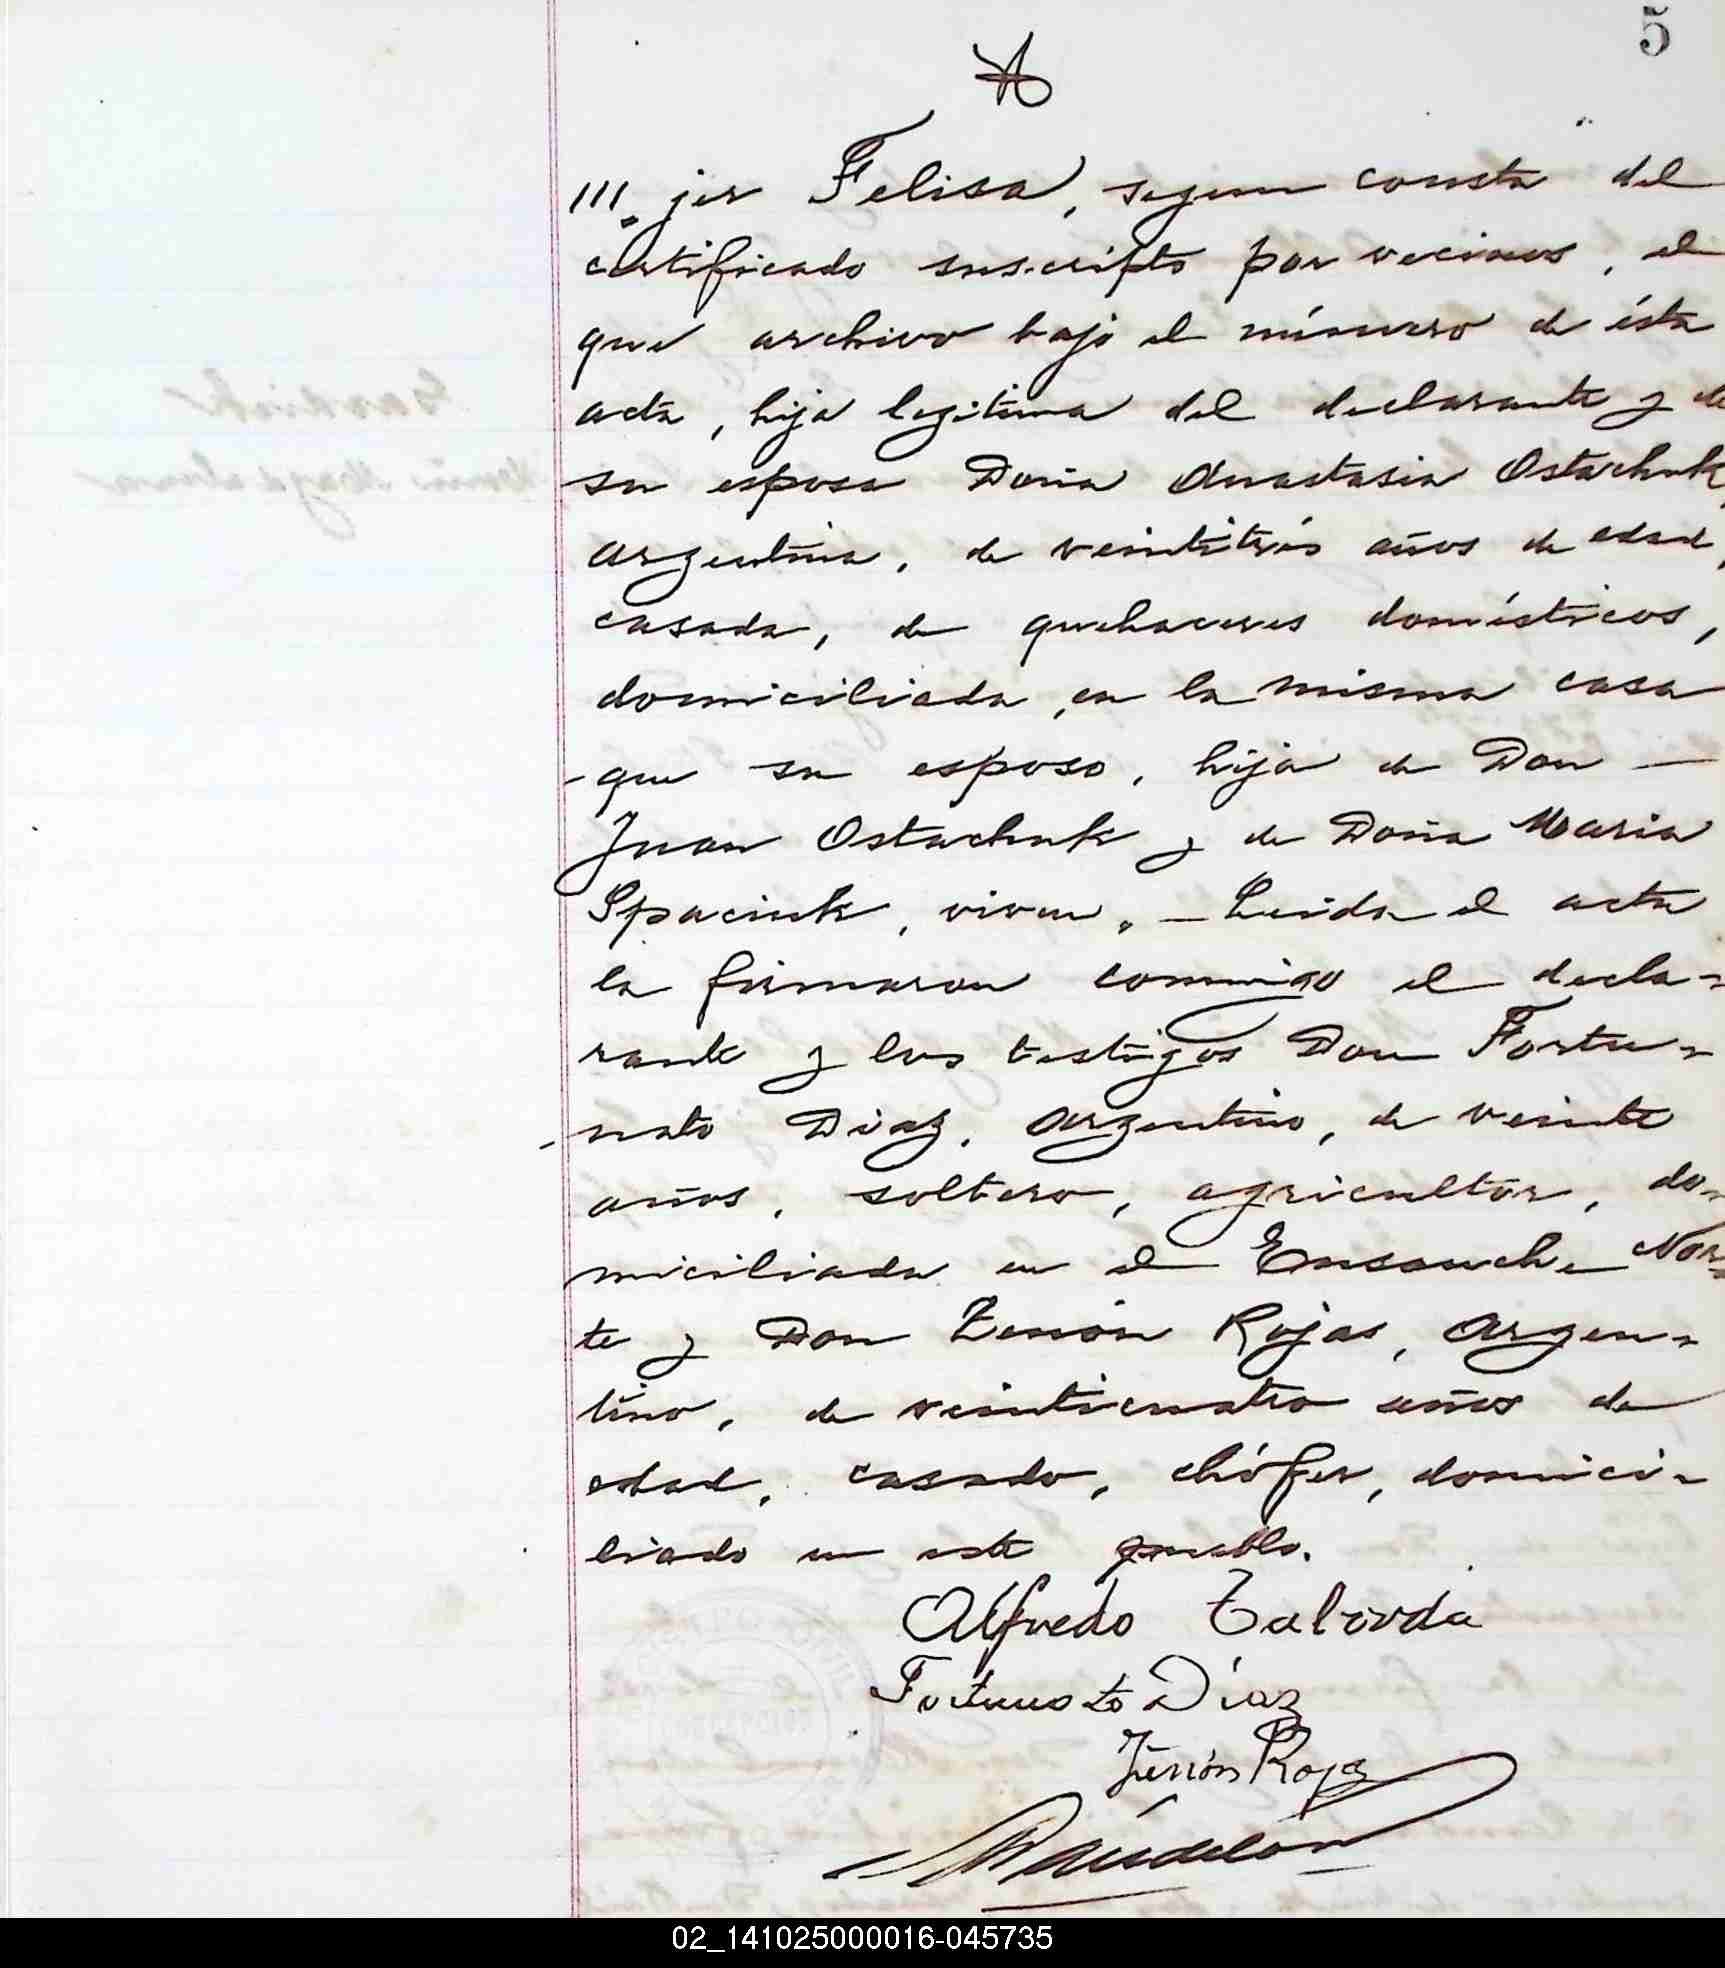 5
III. jer Felisa, segun consta del
certificado suscripto por vecinos, el
que archivo bajo el número de ésta
acta, hija legitima del declarante y de
su esposa Doña Anastasia Ostachuk,
argentina, de veintitrés años de edad,
casada, de quehaceres domésticos,
domiciliada, en la misma casa
que su esposo, hija de Don —
Juan Ostachuk y de Doña Maria
Spaciuk, viven. — Leida el acta
la firmaron conmigo el decla-
rante y los testigos Don Fortu-
nato Diaz, argentino, de veinte
años, soltero, agricultor, do-
miciliado en el Ensanche Nor-
te y Don Zenón Rojas, argen-
tino, de veinticuatro años de
edad, casado, chófer, domici-
liado en este pueblo.
Alfredo Zalivda
Fortunato Díaz
Zenón Rojas
02_141025000016-045735